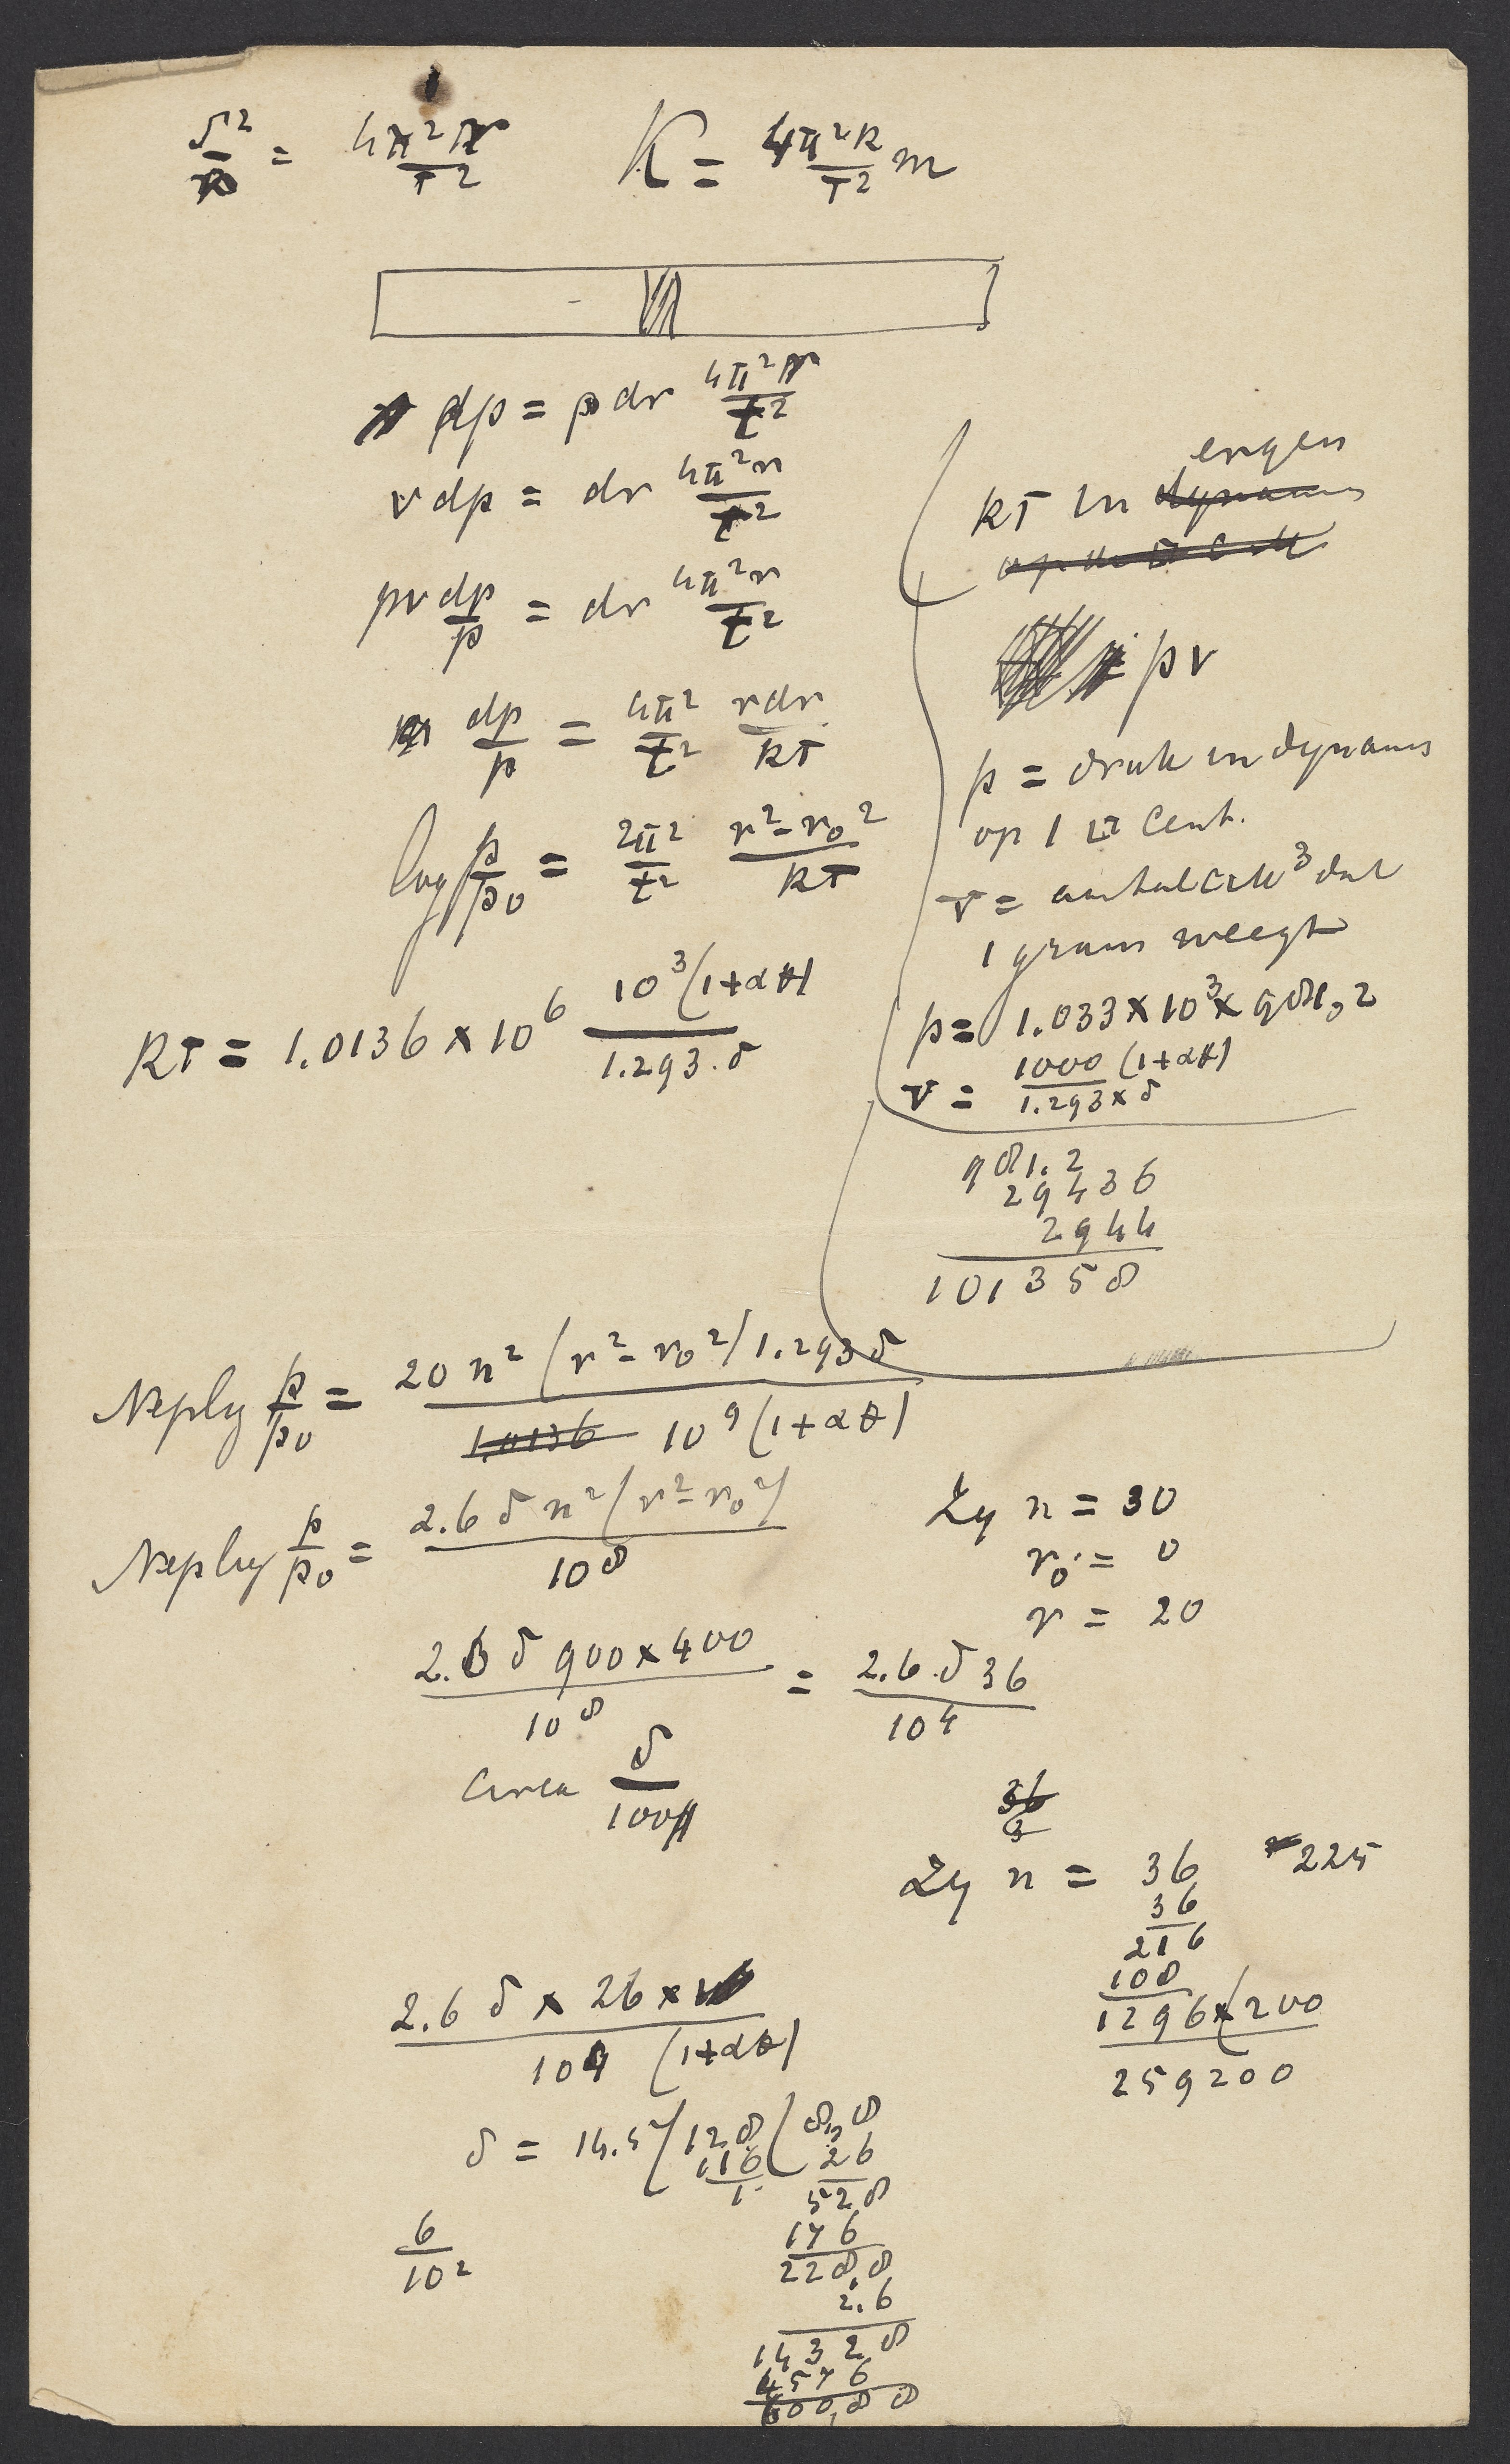 s²/r = 4π²r/T² K = 4π²R/T² m
dp = ρ dr 4π²r/t²
v dp = dr 4π²r/t²
pv dp/p = dr 4π²r/t²
dp/p = 4π²/t² rdr/RT
log p/p₀ = 2π²/t² r²-r₀²/RT
RT = 1.0136 × 10⁶ 10³(1+αt)/1.293.δ
RT in dynamis ergen
pv
p = druk in dynamis
op 1 □ Cent.
v = aantal cM³ dat
1 gram weegt
p = 1.033 × 10³ × 981,2
v = 1000(1+αt)/1.293×δ
981.2
29436
2944
101358
Neplog p/p₀ = 20 n²(r²-r₀²)1.293δ/1.0136 10⁹(1+αt)
Neplog p/p₀ = 2.6 δ n²(r²-r₀²)/10⁸
Zy n = 30
r₀ = 0
r = 20
2.6 δ 900×400/10⁸ = 2.6.δ 36/10⁴
circa δ/100
36
3
Zy n = 36 225
36
216
108
1296×200
259200
2.6 δ × 26 ×/10⁴ (1+αt)
δ = 14.5/128(8,8
116 26
1 528
6/10² 176
228,8
2.6
14328
4576
600,88